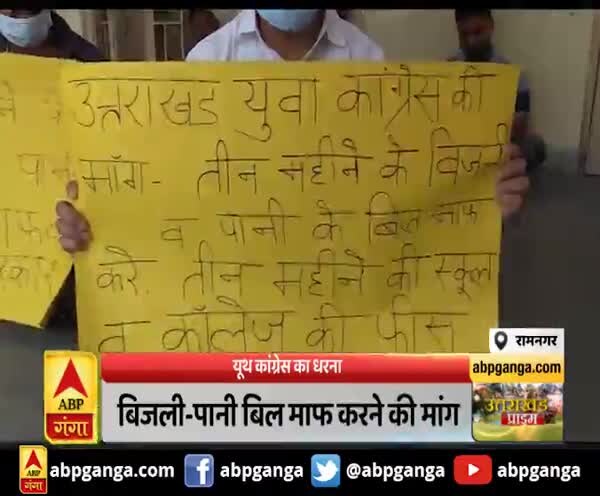 उत्तराखंड युवा कांग्रेस की
मॉग- तीन महीने के बिजली
व पानी के बिल माफ
करे. तीन महीने की स्कूल
व कॉलेज की फीस
पान
रामनगर
यूथ कांग्रेस का धरना
abpganga.com
ABP
गंगा
बिजली-पानी बिल माफ करने की मांग
उत्तराखंड
प्राइम
ABP
गंगा
abpganga.com
abpganga
@abpganga
abpगंगा